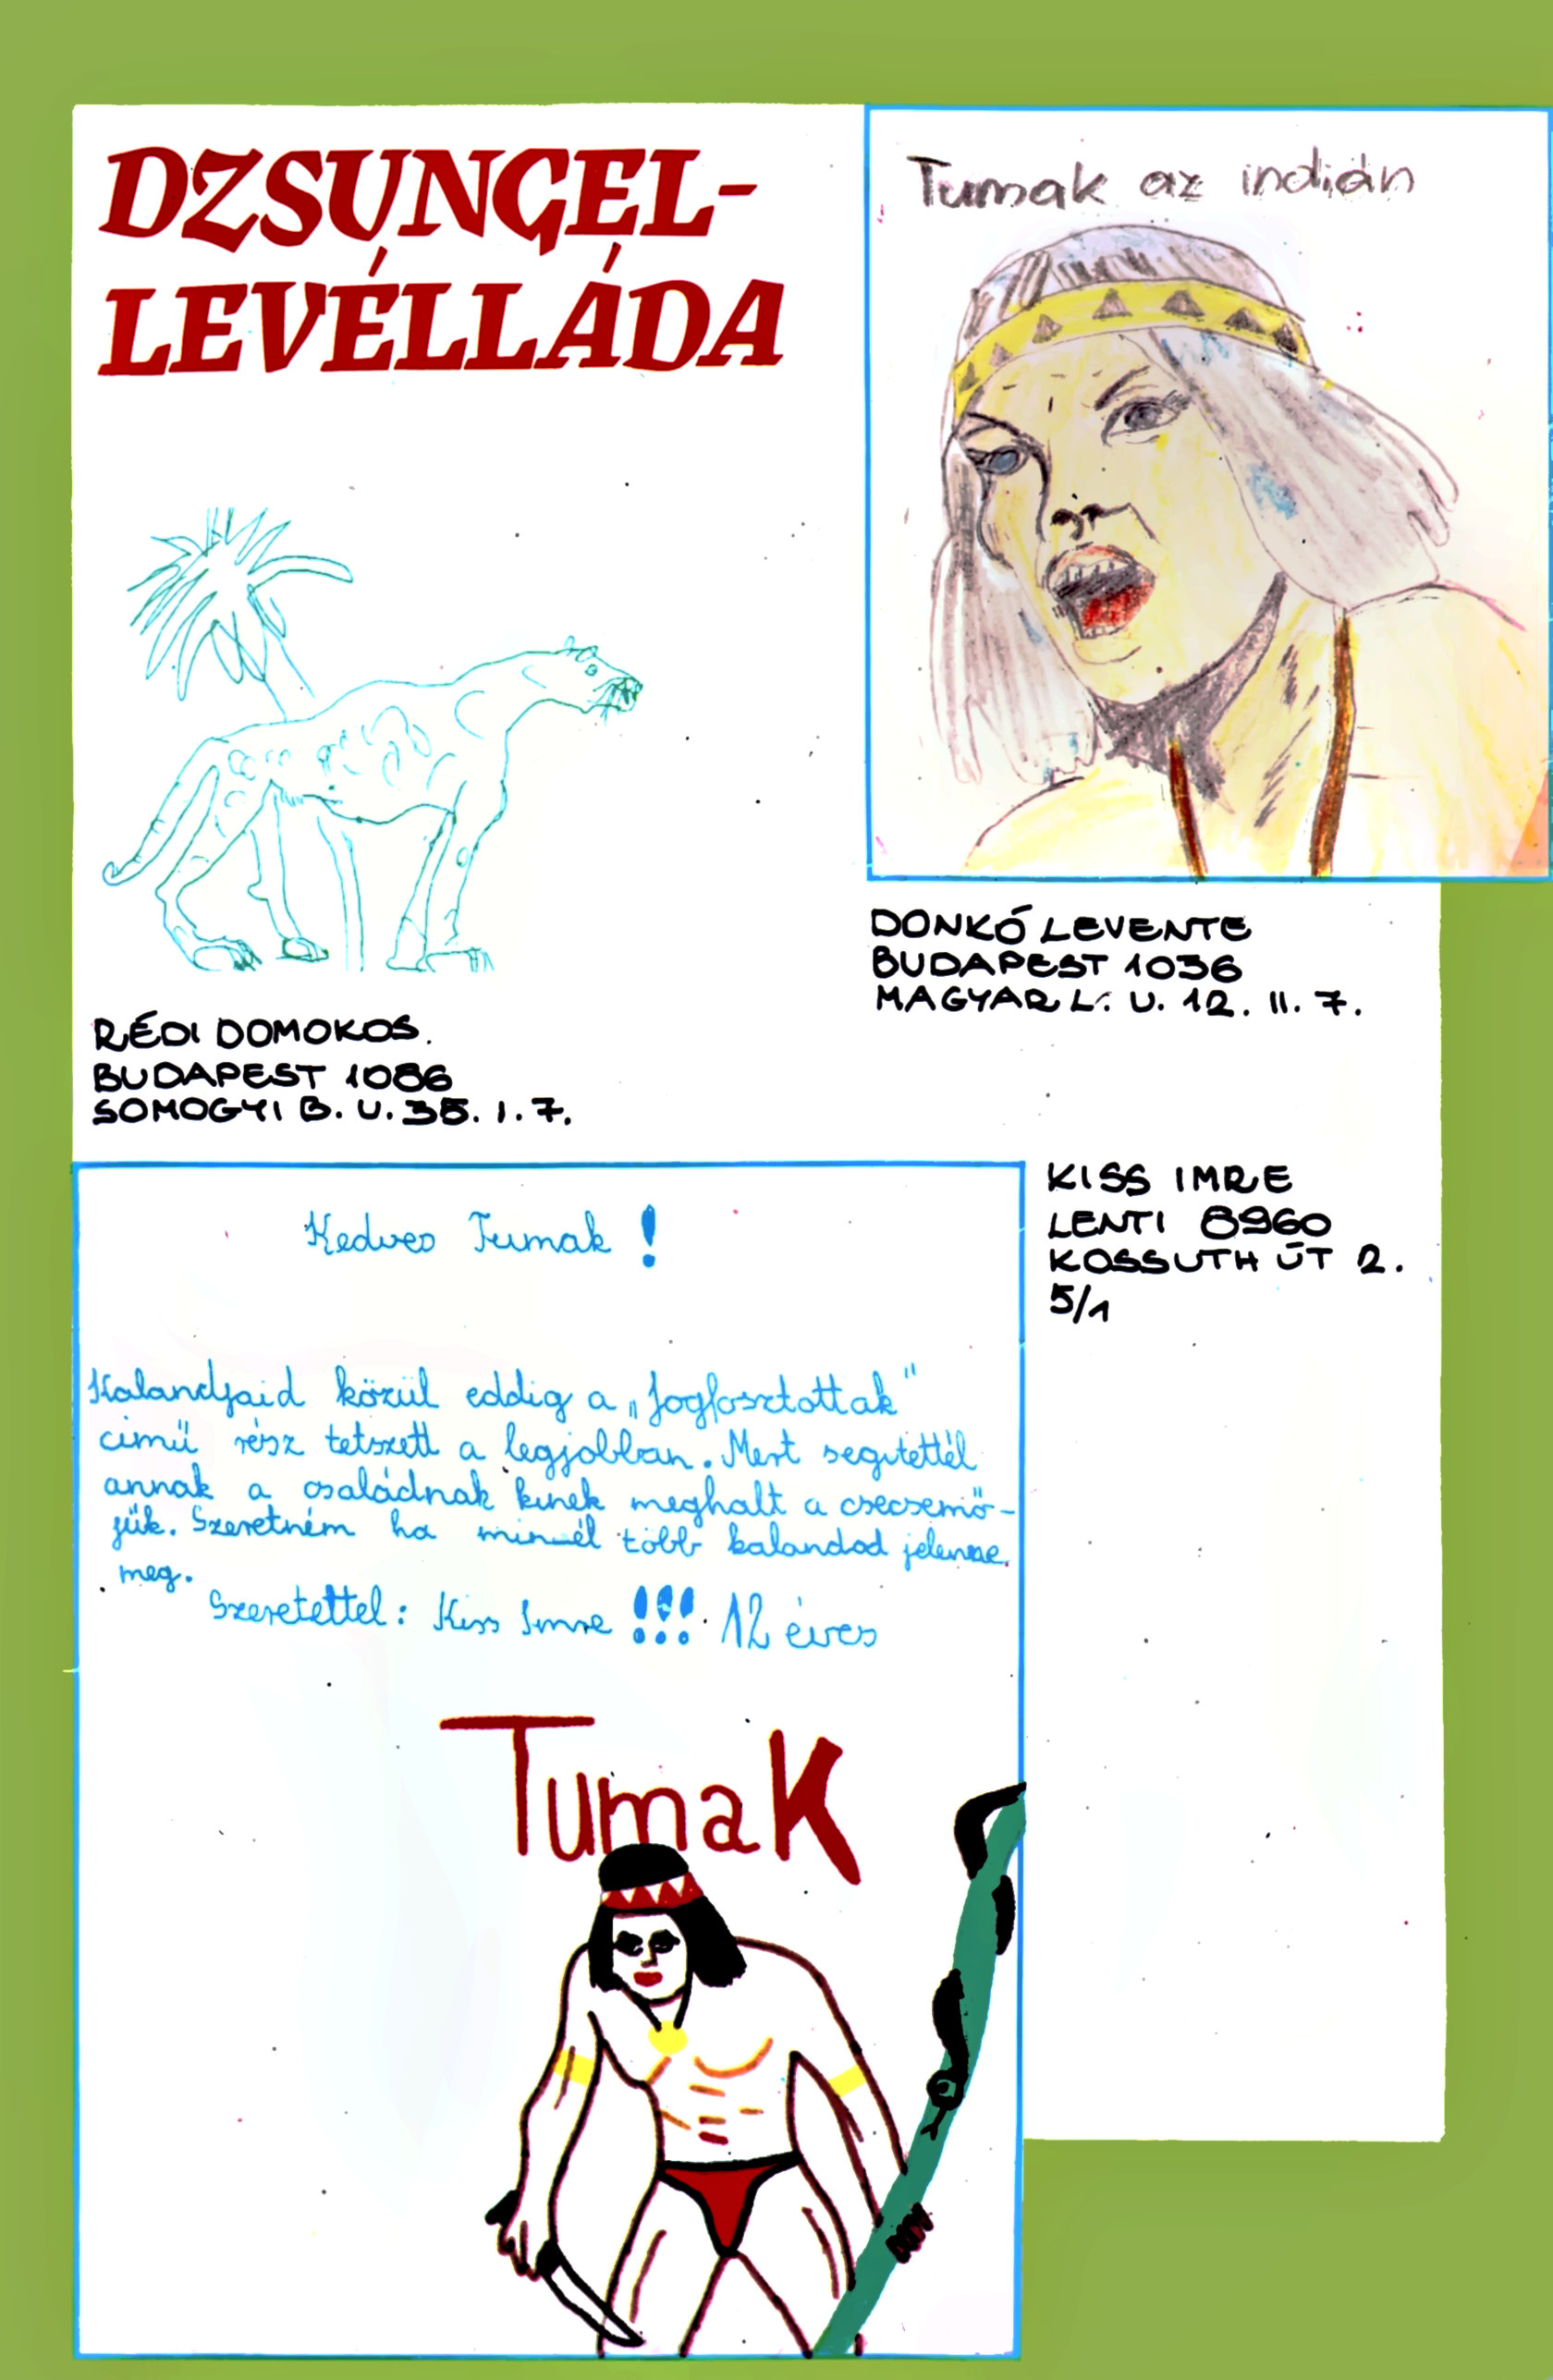 DZSUNGEL-
LEVÉLLÁDA
Tumak az indián
DONKÓ LEVENTE
BUDAPEST 1036
MAGYAR L. U. 12. II. 7.
RÉDI DOMOKOS.
BUDAPEST 1086
SOMOGYI B. U. 38. I. 7.
KISS IMRE
LENTI 8960
KOSSUTH ÚT 2.
5/1
Kedves Tumak!
Kalandjaid közül eddig a „Jogfosztottak"
cimű rész tetszett a legjobban. Mert segitettél
annak a családnak kinek meghalt a csecsemő-
jük. Szeretném ha minél több kalandod jelenne
meg.
Szeretettel: Kiss Imre !!! 12 éves
Tumak